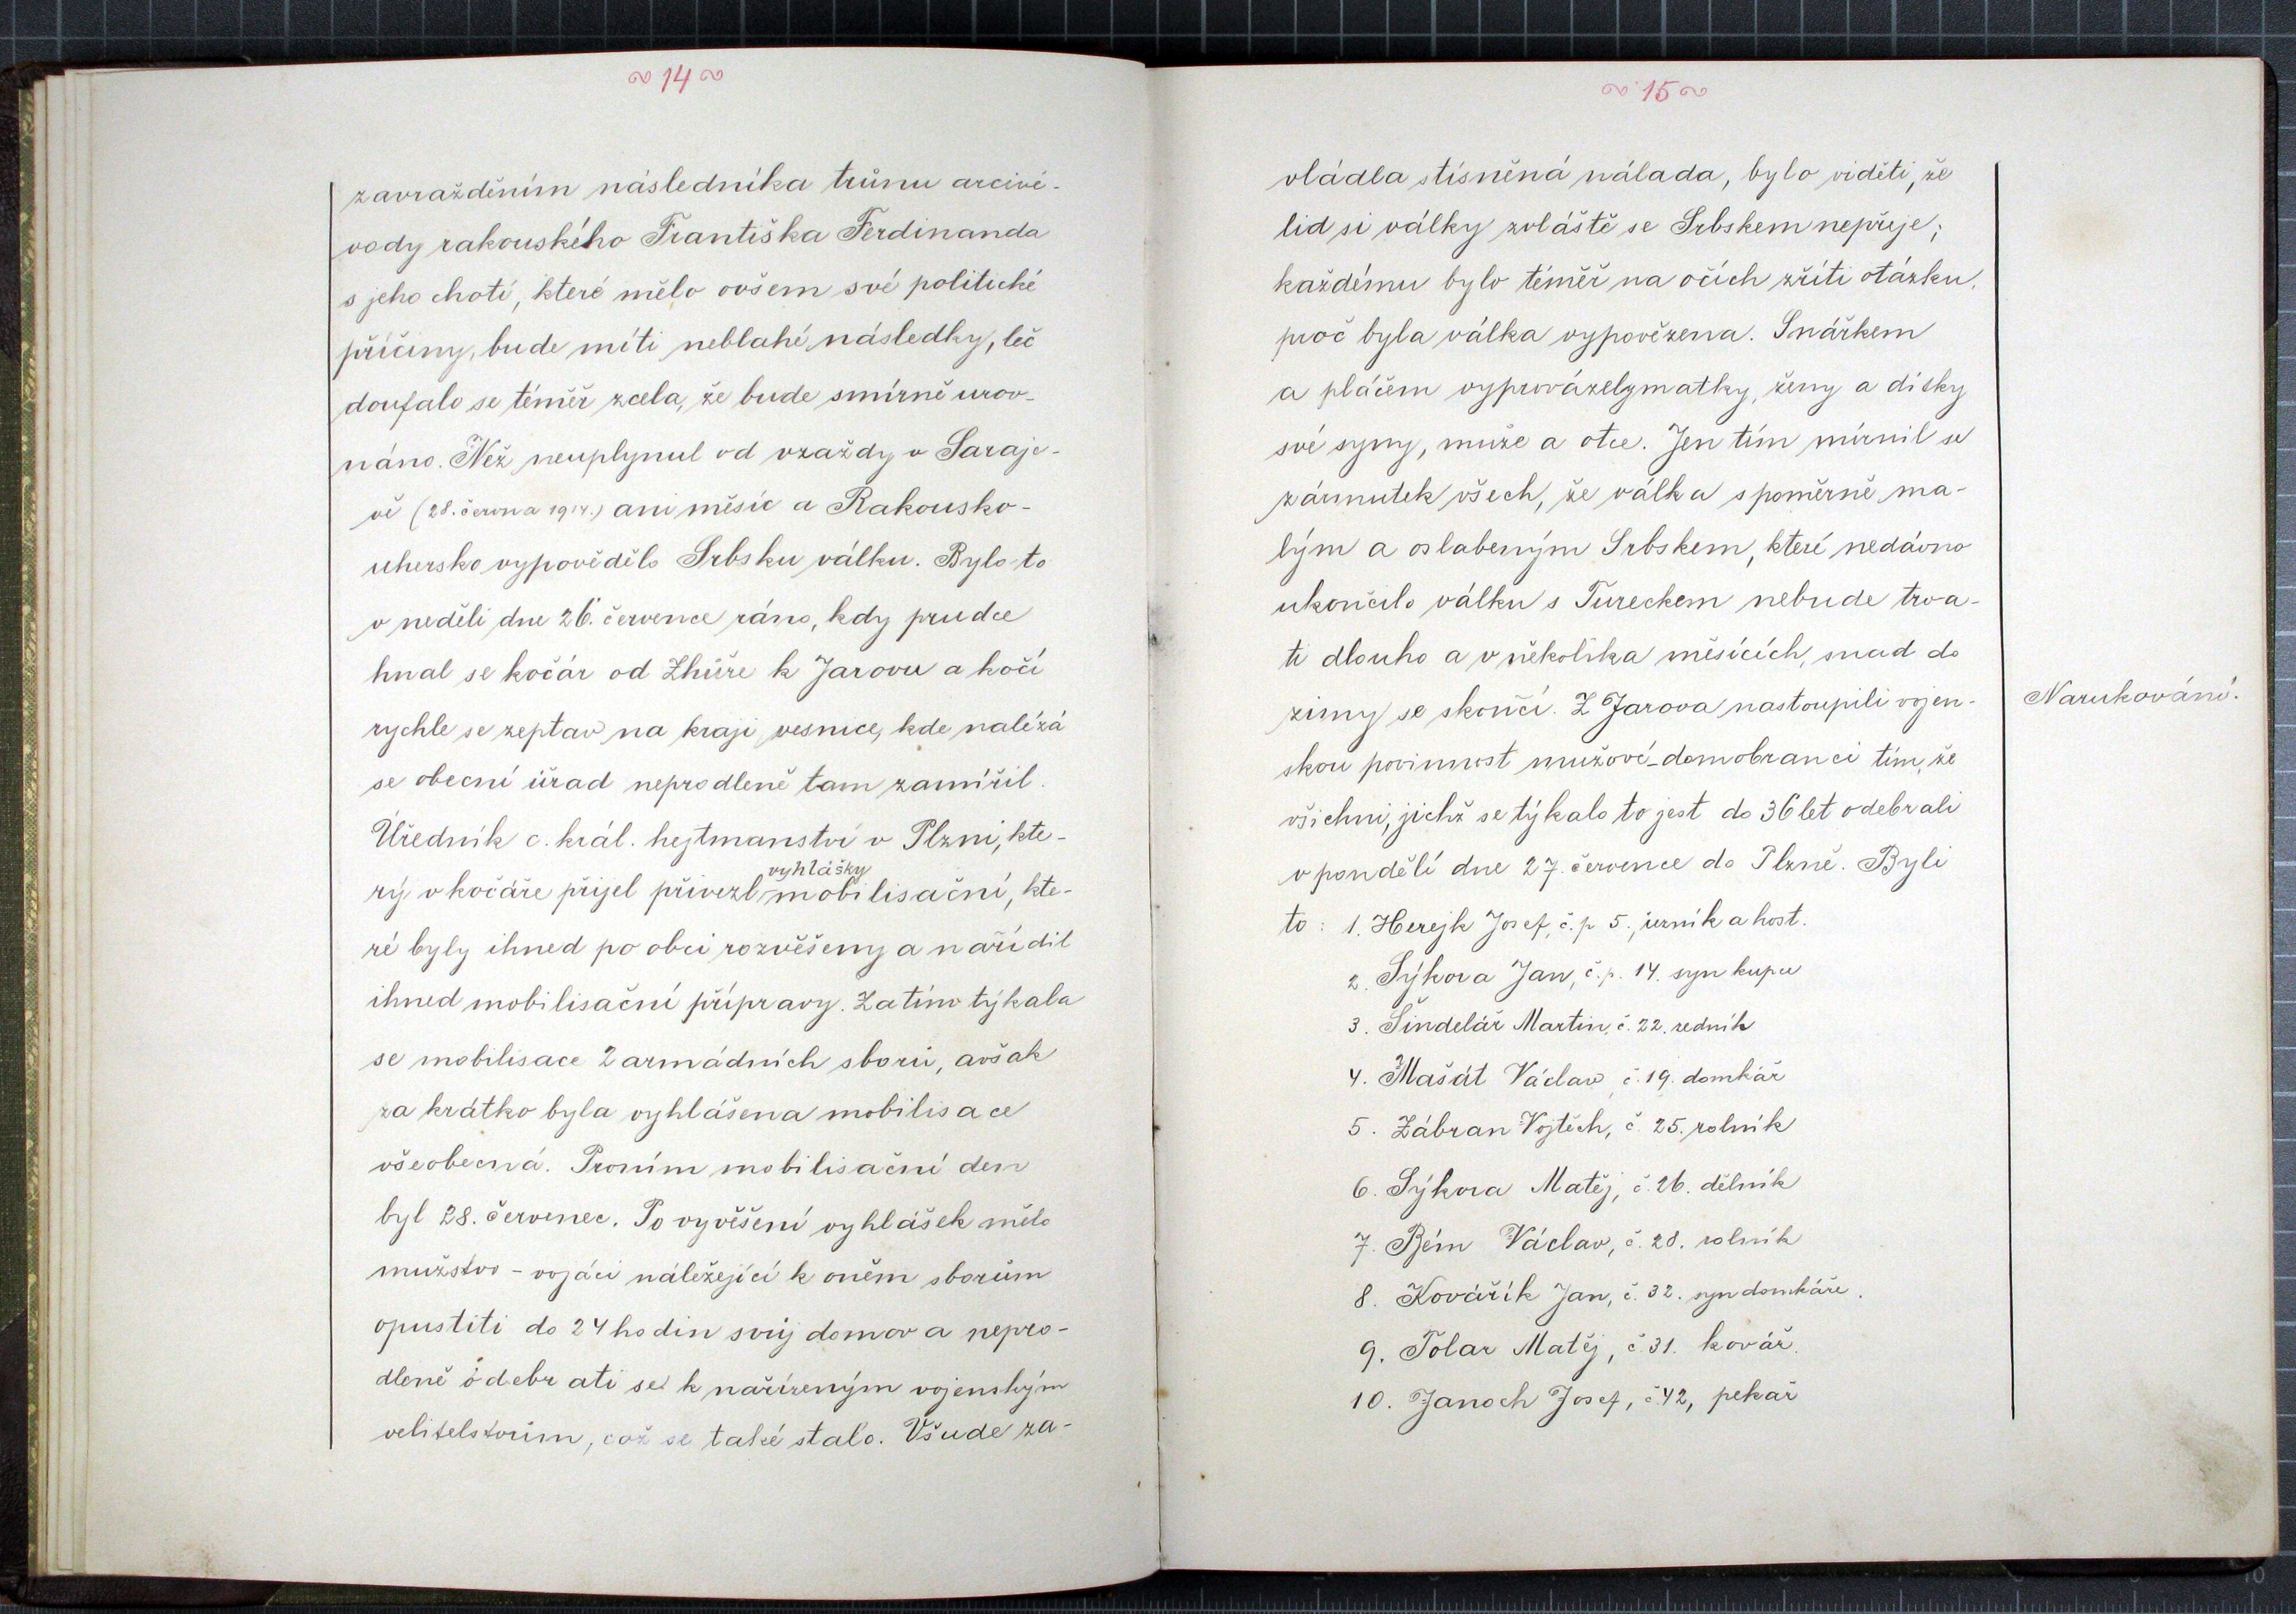 ~ 14 ~
zavražděním následníka trůnu arcivé-
vody rakouského Františka Ferdinanda
s jeho chotí, které mělo ovšem své politické
příčiny, bude míti neblahé následky, leč
doufalo se téměř zcela, že bude smírně urov-
náno. Než neuplynul od vraždy v Saraje-
vě (28. června 1914.) ani měsíc a Rakousko-
uhersko vypovědělo Srbsku válku. Bylo to
v neděli dne 26. července ráno, kdy prudce
hnal se kočár od Zhůře k Jarovu a kočí
rychle se zeptav na kraji vesnice, kde nalézá
se obecní úřad neprodleně tam zamířil.
Úředník c. král. hejtmanství v Plzni, kte-
vyhlášky
rý v kočáře přijel přivezl mobilisační, kte-
ré byly ihned po obci rozvěšeny a nařídil
ihned mobilisační přípravy. Zatím týkala
se mobilisace 2 armádních sborů, avšak
za krátko byla vyhlášena mobilisace
všeobecná. Prvním mobilisační den
byl 28. červenec. Po vyvěšení vyhlášek mělo
mužstvo - vojáci náležející k oněm sborům
opustiti do 24 hodin svůj domov a nepro-
dleně odebrati se k nařízeným vojenským
velitelstvím, což se také stalo. Všude za-
~ 15 ~
vládla stísněná nálada, bylo viděti, že
lid si války zvláště se Srbskem nepřeje;
každému bylo téměř na očích zříti otázku,
proč byla válka vypovězena. S nářkem
a pláčem vyprovázely matky, ženy a dítky
své syny, muže a otce. Jen tím mírnil se
zármutek všech, že válka s poměrně ma-
lým a oslabeným Srbskem, které nedávno
ukončilo válku s Tureckem nebude trva-
ti dlouho a v několika měsících, snad do
zimy se skončí. Z Jarova nastoupili vojen-
Narukování.
skou povinnost mužové-domobranci tím, že
všichni, jichž se týkalo to jest do 36 let odebrali
v pondělí dne 27. července do Plzně. Byli
to: 1. Herejk Josef, č. p 5., řezník a host.
2. Sýkora Jan, č. p. 14. syn kupce
3. Šindelář Martin, č. 22. zedník
4. Mašát Václav, č. 19. domkář
5. Zábran Vojtěch, č. 25. rolník
6. Sýkora Matěj, č. 26. dělník
7. Bém Václav, č. 28. rolník
8. Kovářík Jan, č. 32. syn domkáře.
9. Tolar Matěj, č. 31. kovář.
10. Janoch Josef, č. 42, pekař
10